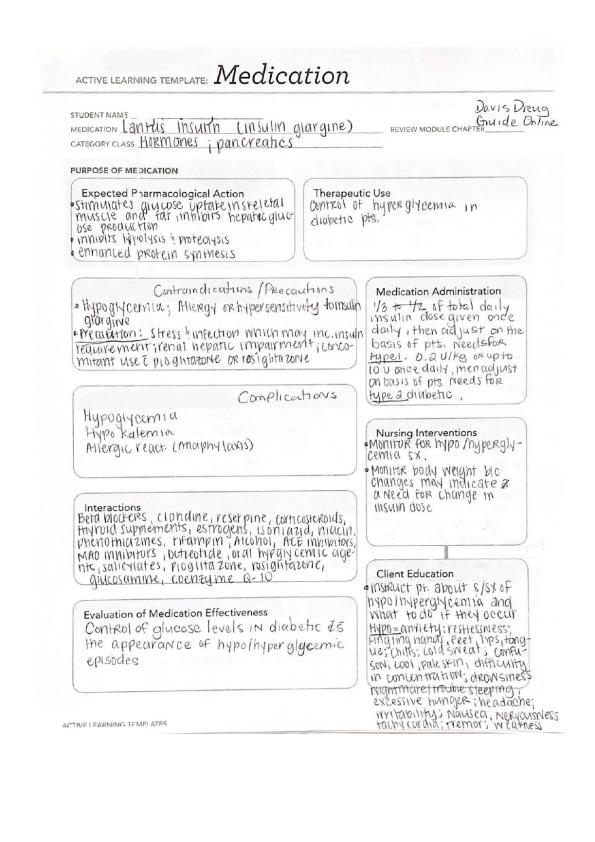 ACTIVE LEARNING TEMPLATE: Medication
Davis Drug
Guide Online
STUDENT NAME
MEDICATION Lantus Insulin (insulin glargine)
REVIEW MODULE CHAPTER
CATEGORY CLASS Hormones ; pancreatics
PURPOSE OF MEDICATION
Expected Pharmacological Action
• Stimulates glucose uptake in skeletal
muscle and fat, inhibits hepatic gluc-
ose production
• inhibits lipolysis & proteolysis
• enhanced protein synthesis
Therapeutic Use
Control of hyperglycemia in
diabetic pts.
Contraindications/Precautions
• Hypoglycemia; Allergy or hypersensitivity to insulin
glargine
• Precaution: stress & infection which may inc. insulin
requirement; renal hepatic impairment; conco-
mitant use c̄ pioglitazone or rosiglitazone
Medication Administration
1/3 to 1/2 of total daily
insulin dose given once
daily, then adjust on the
basis of pts. needs for
type 1. 0.2 U/kg or up to
10 U once daily, then adjust
on basis of pts. needs for
type 2 diabetic.
Complications
Hypoglycemia
Hypokalemia
Allergic react. (Anaphylaxis)
Nursing Interventions
• Monitor for hypo/hypergly-
cemia sx.
• Monitor body weight b/c
changes may indicate
a need for change in
insulin dose
Interactions
Beta blockers, clondine, reserpine, corticosteroids,
thyroid supplements, estrogens, isoniazid, niacin,
phenothiazines, rifampin, Alcohol, ACE inhibitors,
MAO inhibitors, octreotide, oral hypglycemic age-
nts, salicylates, pioglitazone, rosiglitazone,
glucosamine, coenzyme Q-10
Client Education
• instruct pt. about s/sx of
hypo/hyperglycemia and
what to do if they occur
Hypo = anxiety; restlessness;
tingling hands, feet, lips, tong-
ue; chills; cold sweat; confu-
sion; cool, pale skin; difficulty
in concentration; drowsiness
nightmare/trouble sleeping;
excessive hunger; headache;
irritability; Nausea, Nervousness
tachycardia; tremor; weakness
Evaluation of Medication Effectiveness
Control of glucose levels in diabetic
the appearance of hypo/hyperglycemic
episodes
ACTIVE LEARNING TEMPLATES